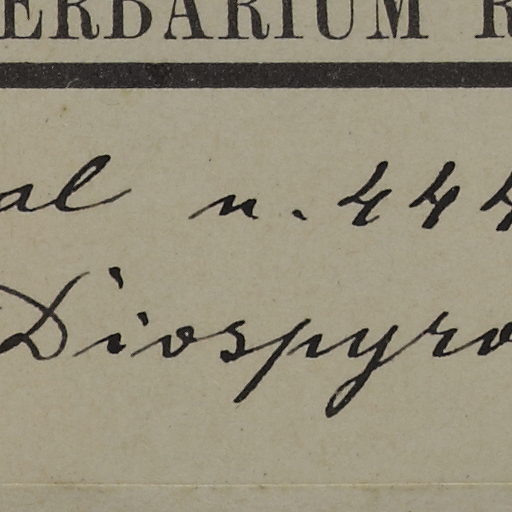 ERBARIUM R
al n. 444
Diospyro